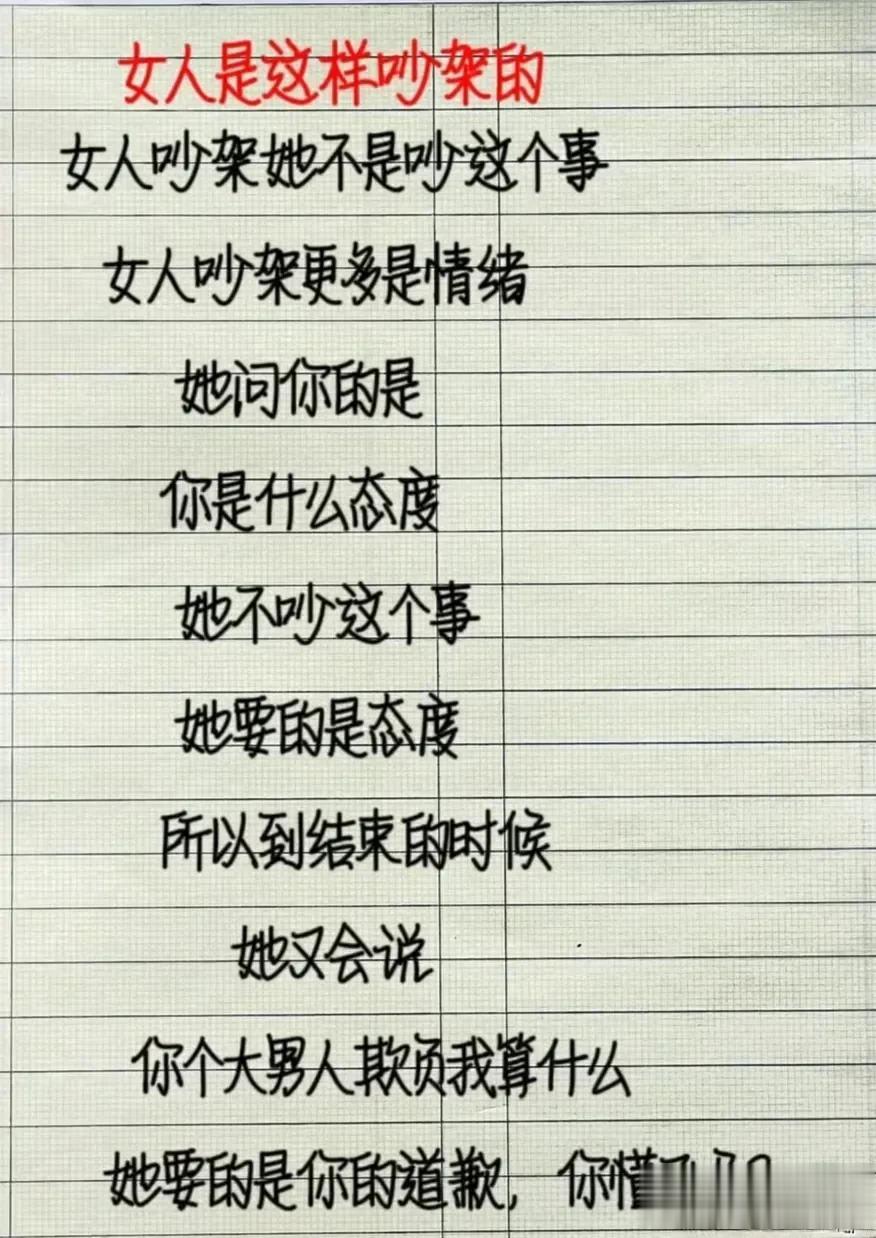 女人是这样吵架的
女人吵架她不是吵这个事
女人吵架更多是情绪
她问你的是
你是什么态度
她不吵这个事
她要的是态度
所以到结束的时候
她又会说
你个大男人欺负我算什么
她要的是你的道歉，你懂